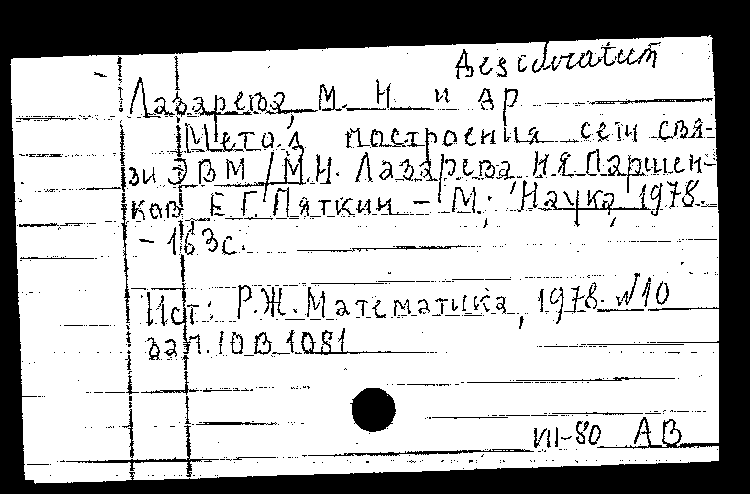 Desideratum
Лазарева, М. Н. и др
Метод построения сети свя-
зи ЭВМ / М.Н. Лазарева Н Я Паршен-
ков Е. Г. Пяткин – М.: Наука, 1978.
– 163с.
Ист: Р.Ж. Математика, 1978. №10
зап. 10В1081
VII-80 АВ